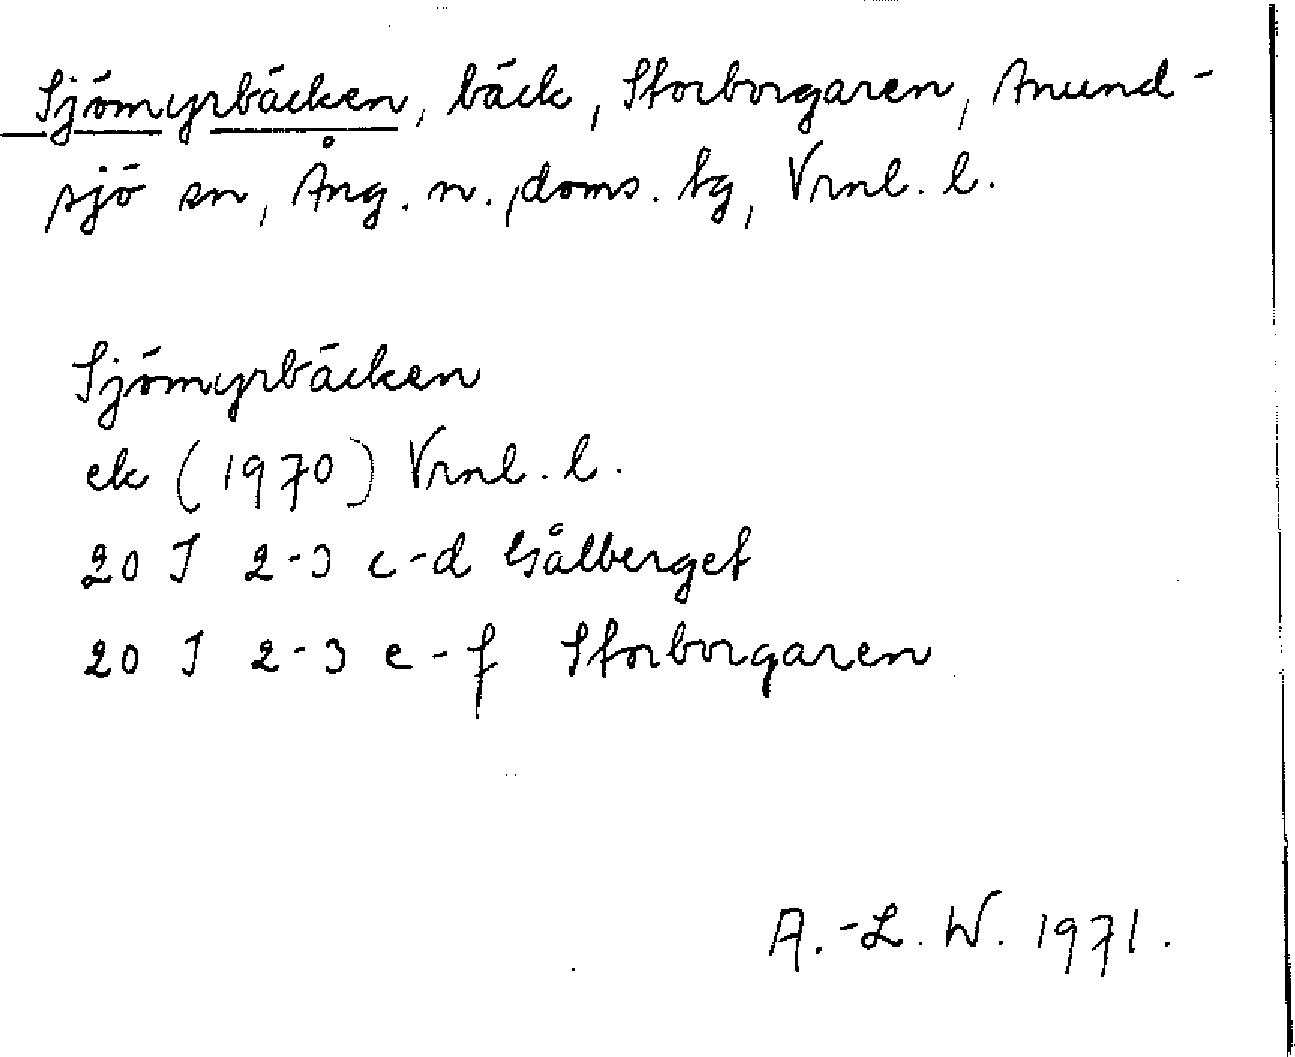 Sjömyrbäcken, bäck, Storborgaren, Anund-
sjö sn, Ång. n. doms. tg, Vrnl. l.
Sjömyrbäcken
ek (1970) Vrnl. l.
20 J 2-3 c-d Gålberget
20 J 2-3 e-f Storborgaren
A.-L. W. 1971.